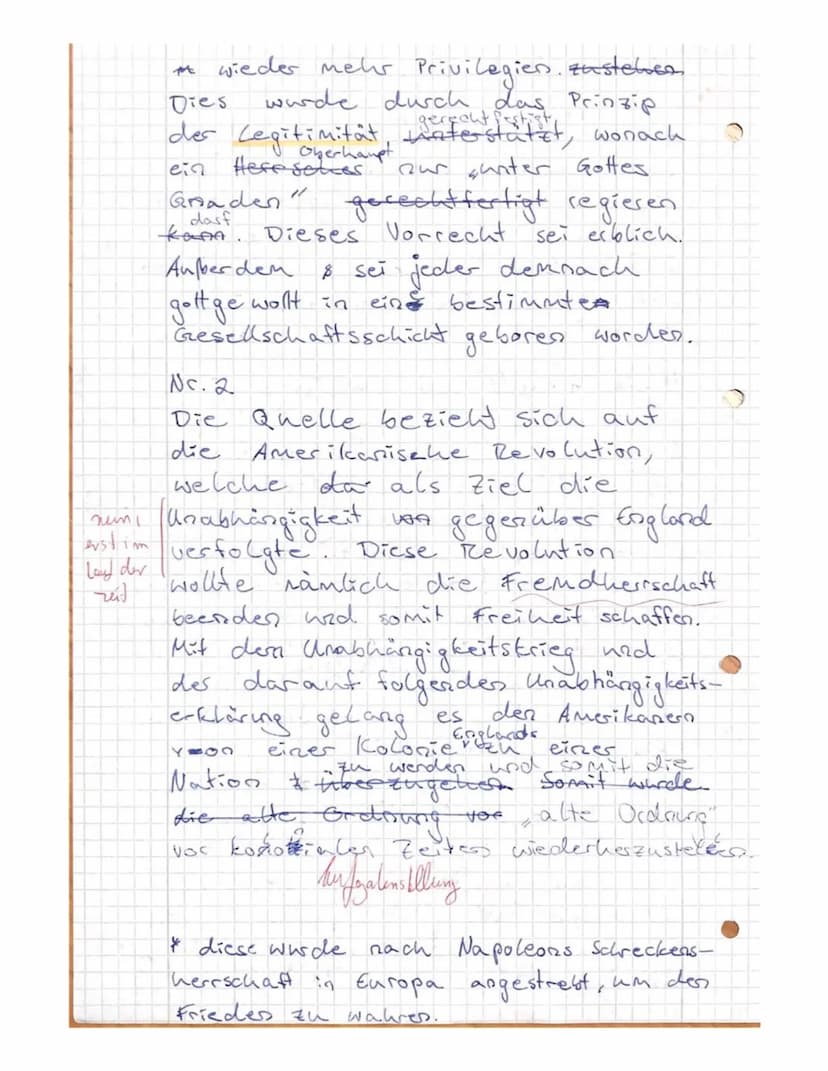 wieder mehr Privilegien. zustehen
Dies wurde durch das Prinzip
gerechtfertigt
der Legitimität unterstützt, wonach
Oberhaupt
ein Herrscher nur „unter Gottes
Gnaden" gerechtfertigt regieren
darf
kann. Dieses Vorrecht sei erblich.
Außerdem sei jeder demnach
gottgewollt in eine bestimmte
Gesellschaftsschicht geboren worden.
Nr. 2
Die Quelle bezieht sich auf
die Amerikanische Revolution,
welche da als Ziel die
nein,
Unabhängigkeit von gegenüber England
erst im
verfolgte. Diese Revolution
Lauf der
wollte nämlich die Fremdherrschaft
Zeit
beenden und somit Freiheit schaffen.
Mit dem Unabhängigkeitskrieg und
der darauf folgenden Unabhängigkeits-
erklärung gelang es den Amerikanern
Englands
von einer Kolonie zu einer
zu werden und somit die
Nation überzugehen Somit wurde
die alte Ordnung vor „alte Ordnung"
vor kolonialen Zeiten wiederherzustellen.
* diese wurde nach Napoleons Schreckens-
herrschaft in Europa angestrebt, um den
Frieden zu wahren.